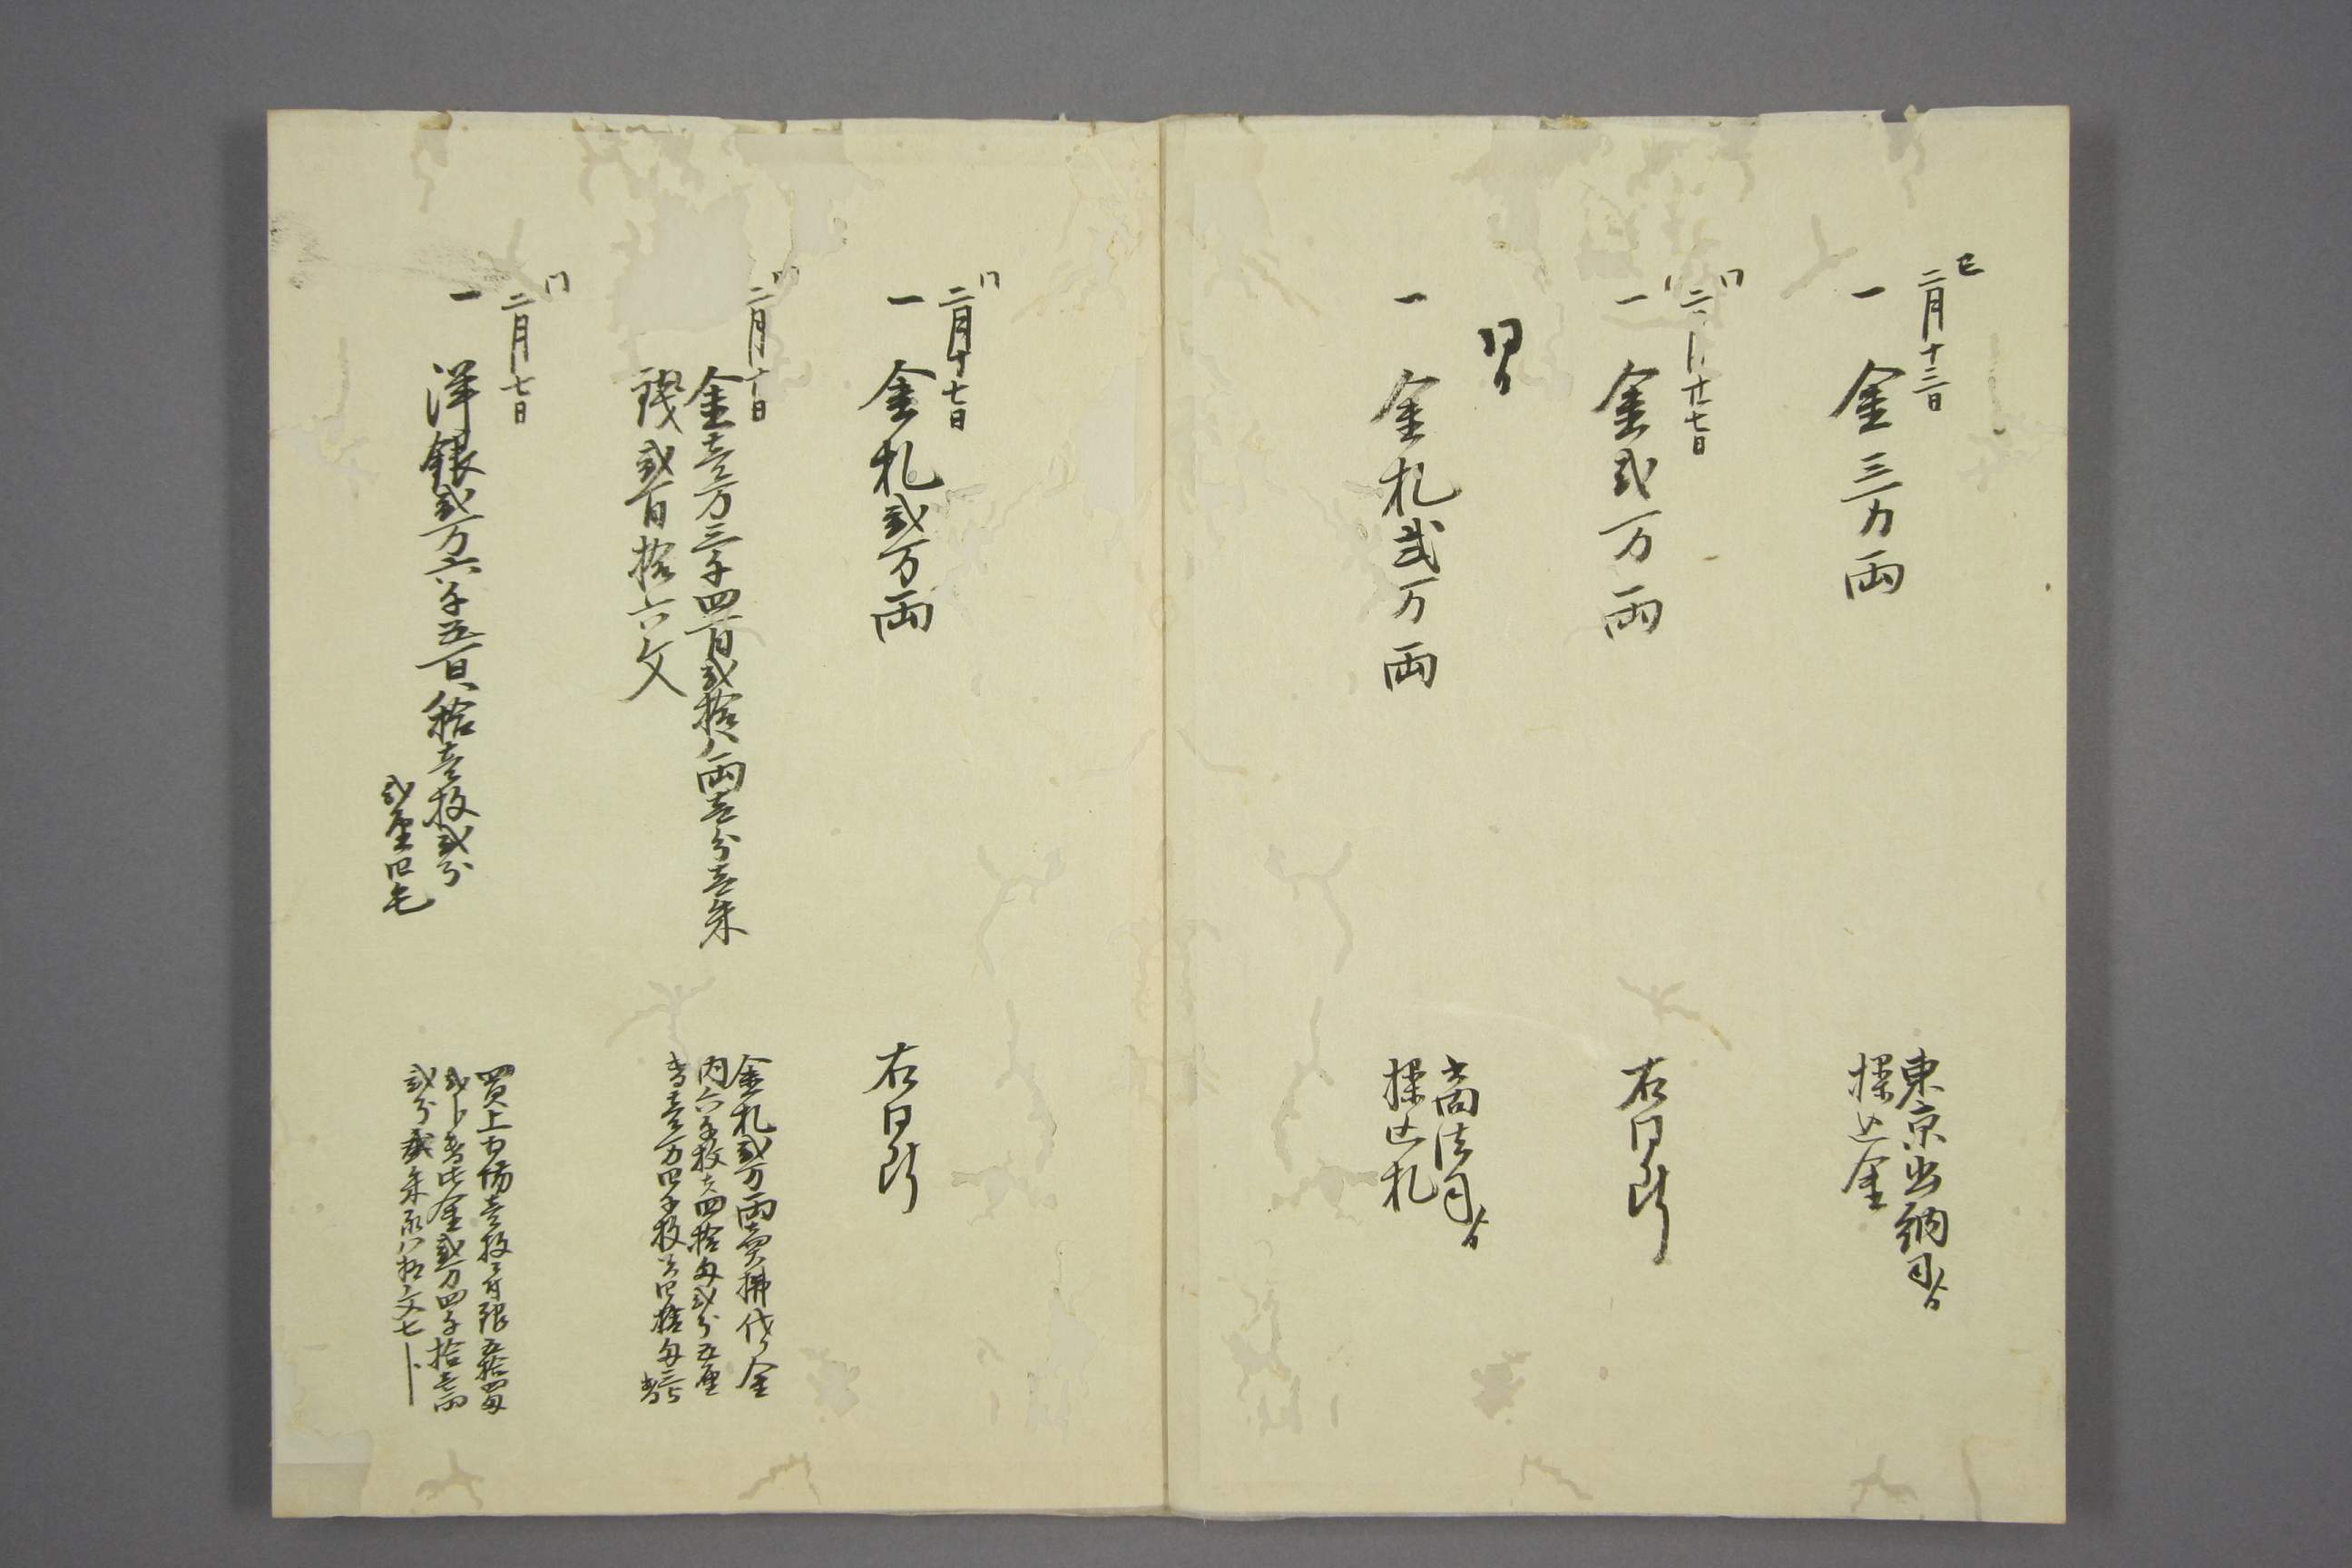 巳
二月十三日
一 金三万両
東京出納司ゟ
操込金
同
二月廿七日
一 金弐万両
右同断
同日
一 金札弐万両
商法司ゟ
操込札
同
二月十七日
一 金札弐万両
右同断
同
二月十日
金壱万三千四百弐拾八両壱分壱朱
銭弐百拾六文
金札弐万両売払代り金
内六千枚 四拾匁弐分五厘
壱万四千枚 四拾匁
同
二月七日
一 洋銀弐万六千五百八拾壱枚弐分
弐厘四毛
買上相場壱枚ニ付銀五拾四匁
此金弐万四千拾壱両
弐分弐朱永八拾六文七